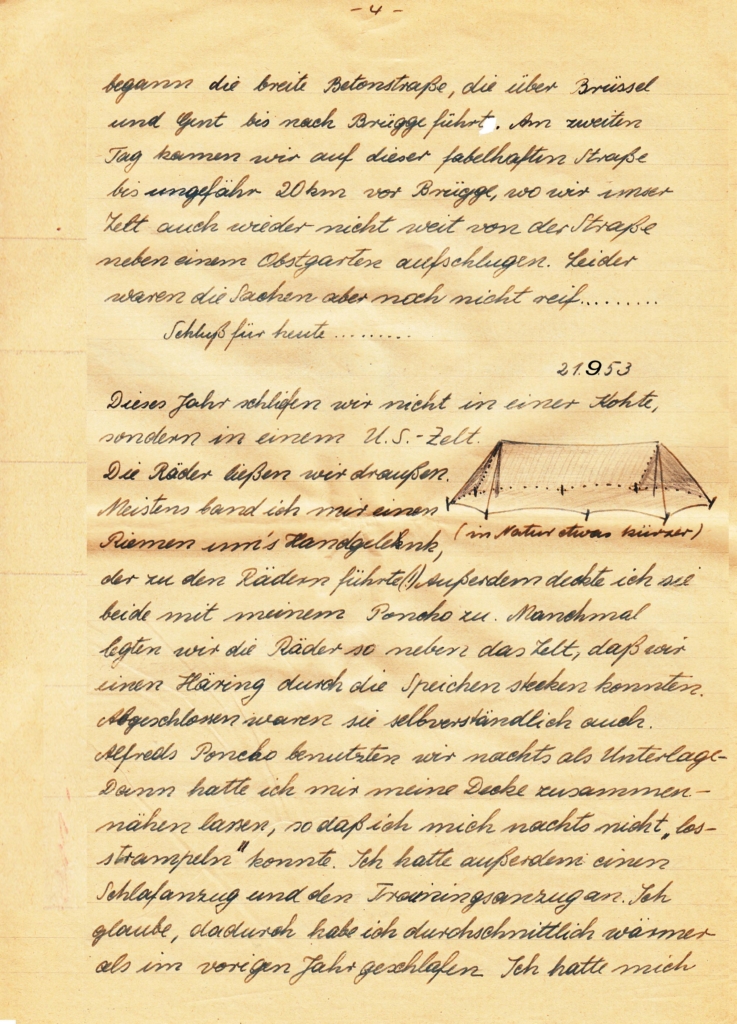 - 4 -
begann die breite Betonstraße, die über Brüssel
und Gent bis nach Brügge führt. Am zweiten
Tag kamen wir auf dieser fabelhaften Straße
bis ungefähr 20 km vor Brügge, wo wir unser
Zelt auch wieder nicht weit von der Straße
neben einem Obstgarten aufschlugen. Leider
waren die Sachen aber noch nicht reif.........
Schluß für heute .........
21.9.53
Dieses Jahr schliefen wir nicht in einer Kohte,
sondern in einem U.S.-Zelt.
Die Räder ließen wir draußen.
Meistens band ich mir einen
(in Natur etwas kürzer)
Riemen um's Handgelenk,
der zu den Rädern führte(!) Außerdem deckte ich sie
beide mit meinem Poncho zu. Manchmal
legten wir die Räder so neben das Zelt, daß wir
einen Häring durch die Speichen stecken konnten.
Abgeschlossen waren sie selbverständlich auch.
Alfreds Poncho benutzten wir nachts als Unterlage.
Dann hatte ich mir meine Decke zusammen-
nähen lassen, so daß ich mich nachts nicht „los-
strampeln" konnte. Ich hatte außerdem einen
Schlafanzug und den Trainingsanzug an. Ich
glaube, dadurch habe ich durchschnittlich wärmer
als im vorigen Jahr geschlafen. Ich hatte mich